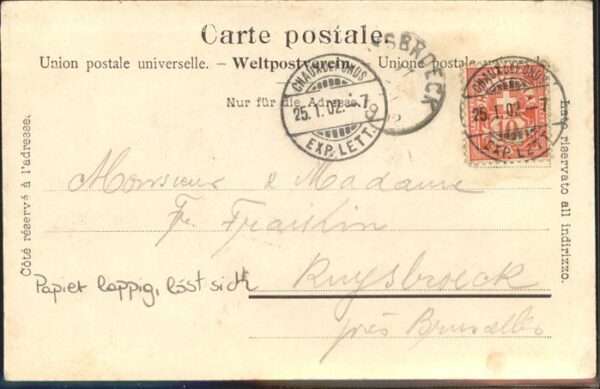 Carte postale.
Union postale universelle. – Weltpostverein. Unione postale
Nur für die Adresse.
CHAUXDEFONDS
25.1.02.-7
EXP. LETT.
SBROECK
CHAUXDEFONDS
25.1.02.-7
EXP. LETT.
Côté réservé à l'adresse.
Lato riservato all indirizzo.
Monsieur & Madame
Fr. Fraikin
Ruysbroeck
près Bruxelles
Papier lappig, löst sich